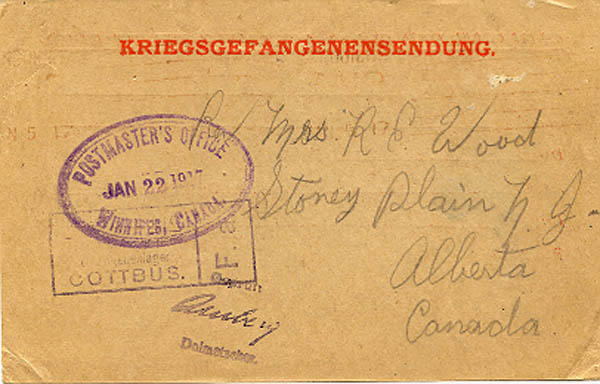 KRIEGSGEFANGENENSENDUNG.
POSTMASTER'S OFFICE
JAN 22 1917
WINNIPEG, CANADA
COTTBUS.
P.F.
Mrs. R E Wood
Stoney Plain
Alberta
Canada.
Dolmetscher.